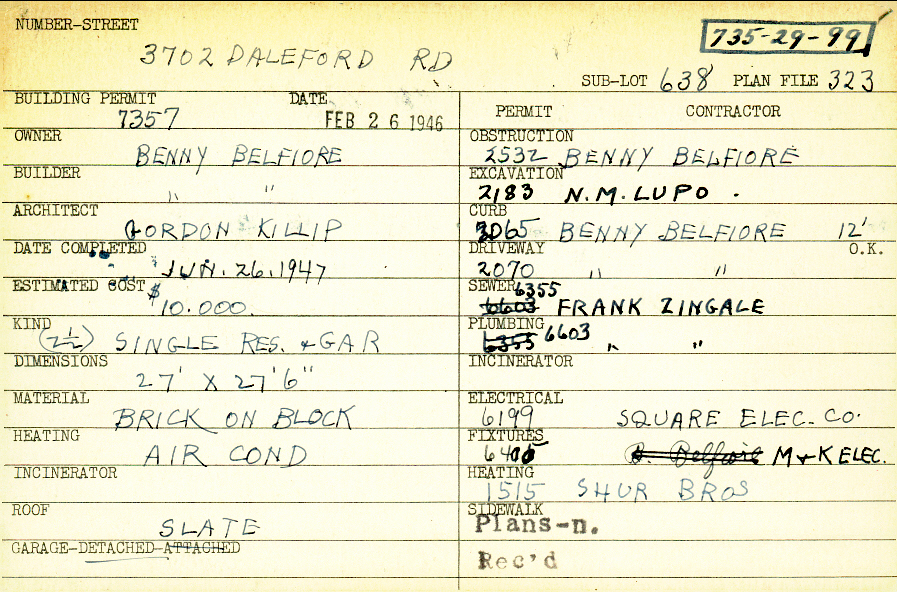 NUMBER-STREET
735-29-99
3702 DALEFORD RD
SUB-LOT 638 PLAN FILE 323
BUILDING PERMIT DATE
7357 FEB 26 1946
OWNER
BENNY BELFIORE
BUILDER
" "
ARCHITECT
GORDON KILLIP
DATE COMPLETED
JUN. 26. 1947
ESTIMATED COST
$10.000.
KIND
(2½) SINGLE RES. & GAR
DIMENSIONS
27' X 27'6"
MATERIAL
BRICK ON BLOCK
HEATING
AIR COND
INCINERATOR
ROOF
SLATE
GARAGE-DETACHED-ATTACHED
PERMIT CONTRACTOR
OBSTRUCTION
2532 BENNY BELFIORE
EXCAVATION
2183 N.M. LUPO .
CURB
3065 BENNY BELFIORE 12'
DRIVEWAY O.K.
2070 " "
SEWER 6355
6603 FRANK ZINGALE
PLUMBING 6603
6355 " "
INCINERATOR
ELECTRICAL
6199 SQUARE ELEC. CO.
FIXTURES
B. Belfiore M & K ELEC.
HEATING
1515 SHUR BROS
SIDEWALK
Plans-n.
Rec'd